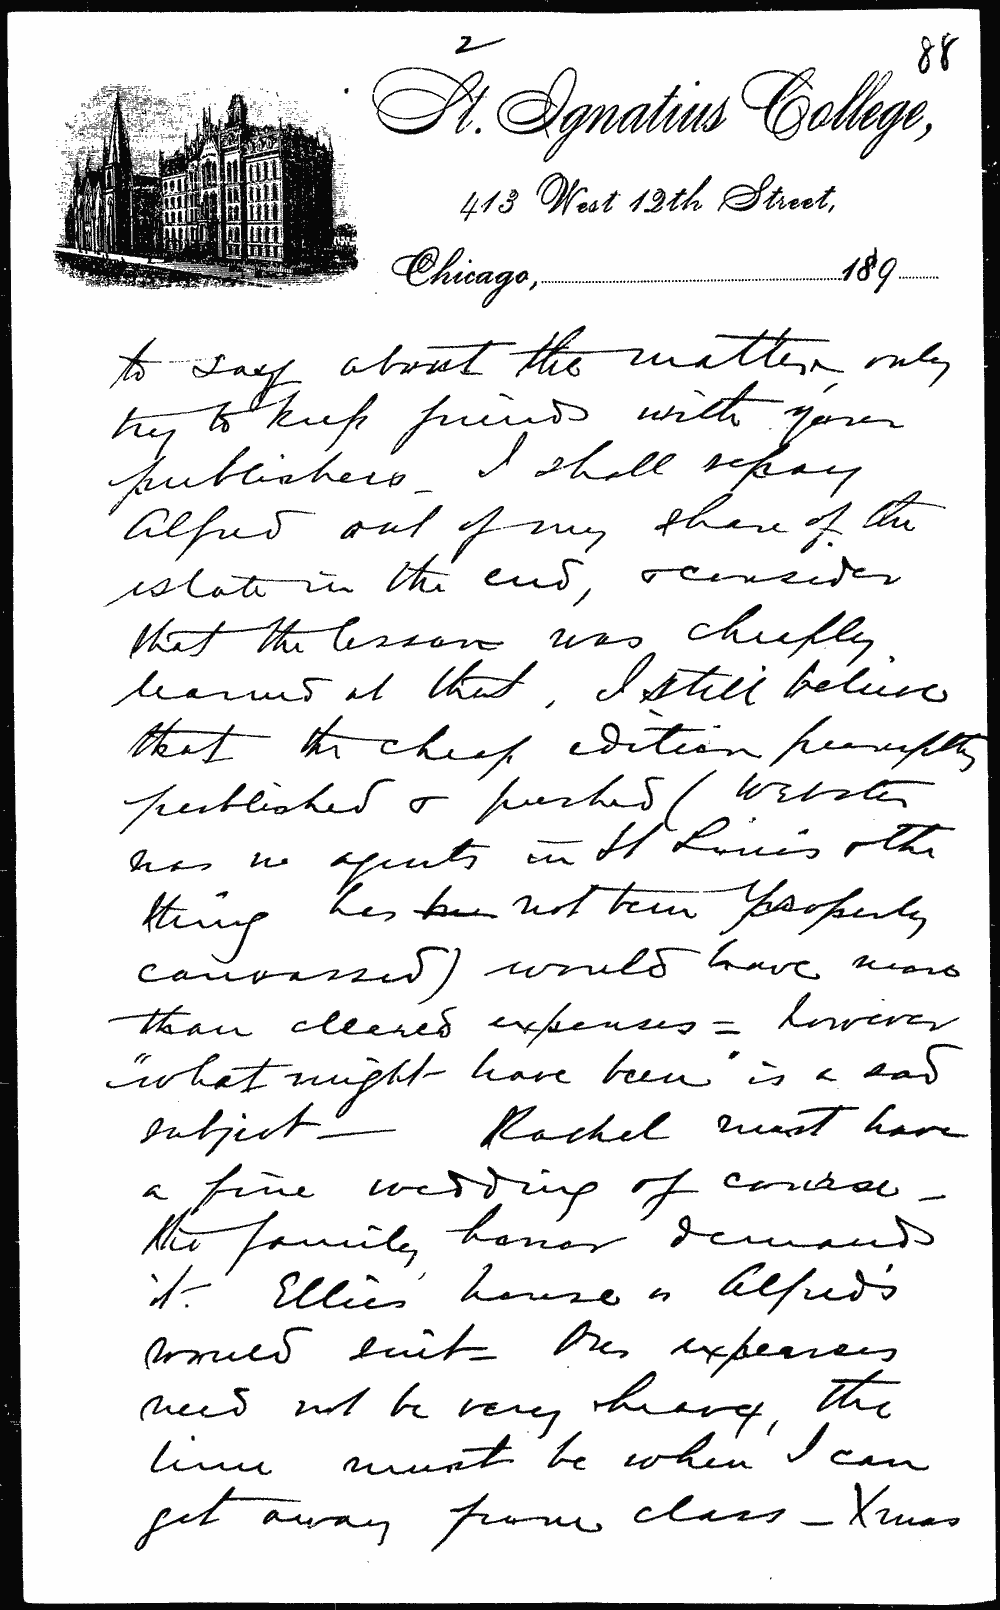 2
88
St. Ignatius College,
413 West 12th Street,
Chicago, 189
to say about the matter, only
try to keep friends with your
publishers. I shall repay
Alfred out of my share of the
estate in the end, & consider
that the lesson was cheaply
learned at that. I still believe
that the cheap edition promptly
published & pushed (Webster
has no agents in St Louis & the
thing has been not been properly
canvassed) would have more
than cleared expenses = however
"what might have been" is a sad
subject — Rachel must have
a fine wedding of course –
the family honor demands
it. Ellie's house or Alfred's
would suit – The expenses
need not be very heavy, the
time must be when I can
get away from class – Xmas